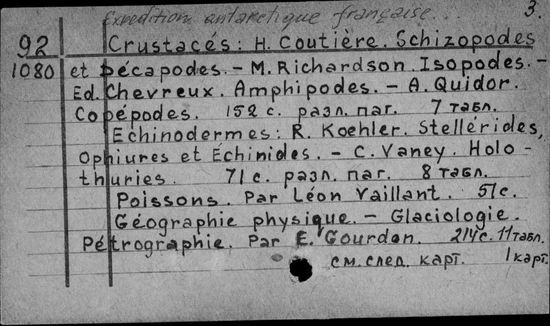 Expedition antarctique française... 3.
92 Crustacés: H. Coutière. Schizopodes
1080 et Décapodes. - M. Richardson. Isopodes. -
Ed. Chevreux. Amphipodes. - A. Quidor.
Copépodes. 152 с. разл. паг. 7 табл.
Echinodermes: R. Koehler. Stellérides,
Ophiures et Echinides. - C. Vaney. Holo-
thuries. 71 с. разл. паг. 8 табл.
Poissons. Par Léon Vaillant. 51 с.
Géographie physique. - Glaciologie.
Pétrographie. Par E. Gourdon. 214 с. 11 табл.
см. след. карт. 1 карт.